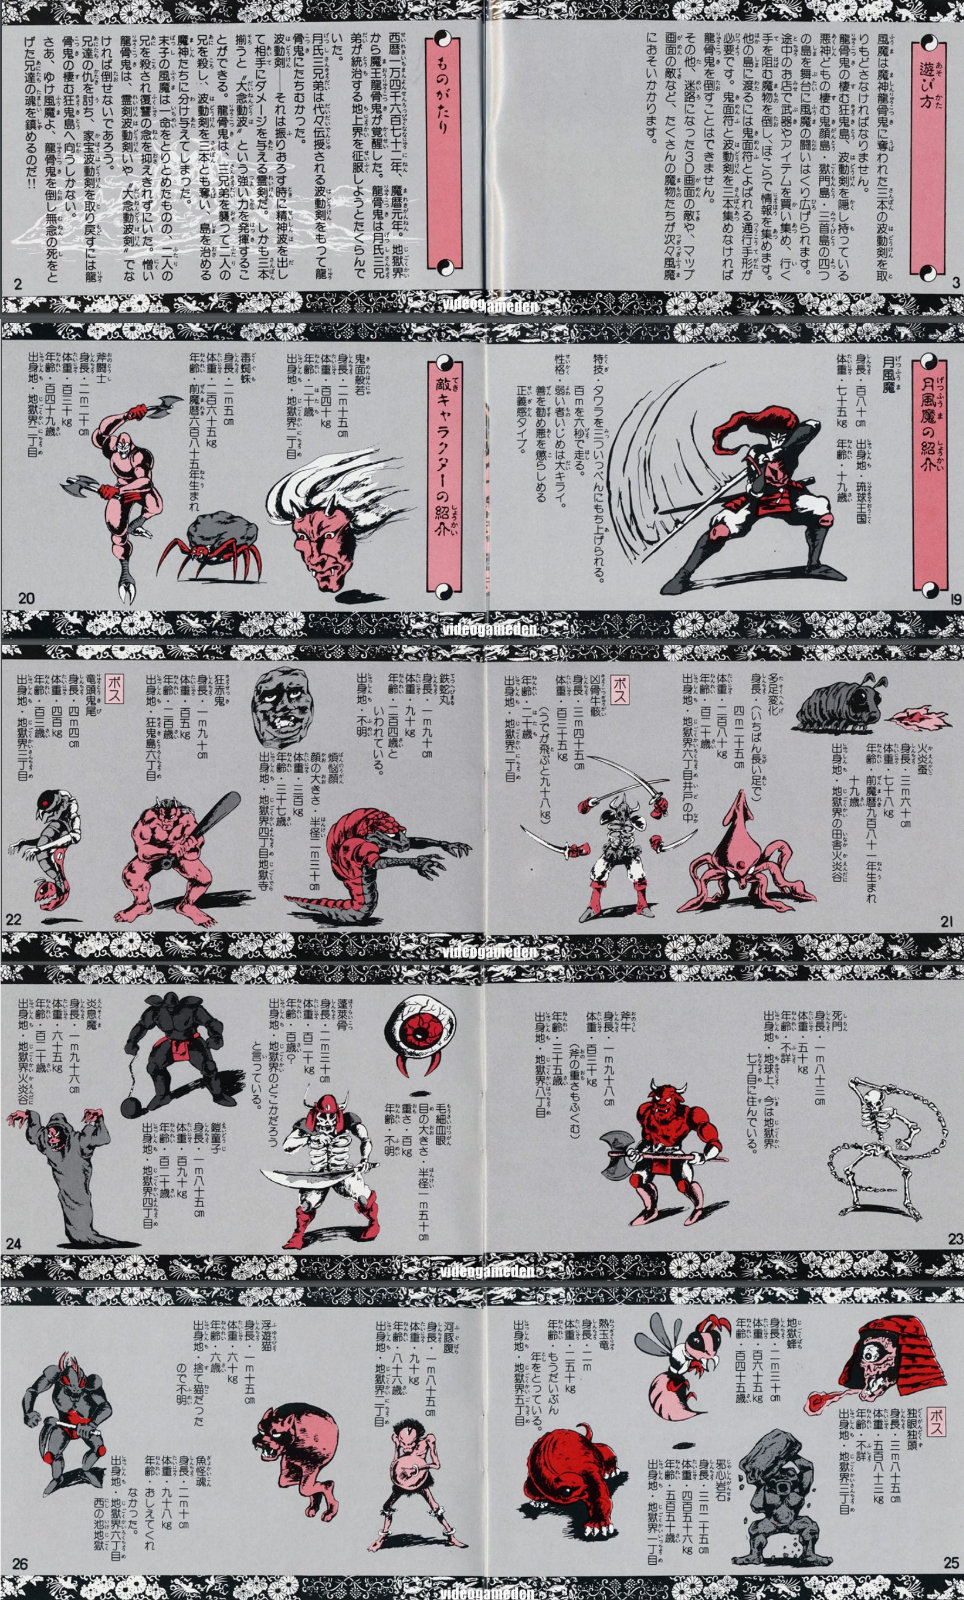 ものがたり
西暦一万四千六百七十二年、魔暦元年。地獄界
から魔王龍骨鬼が覚醒した。龍骨鬼は月氏三兄
弟が統治する地上界を征服しようとたくらんで
いた。
月氏三兄弟は代々伝授される波動剣をもって龍
骨鬼にたちむかった。
波動剣――それは振りおろす時に精神波を出し
て相手にダメージを与える霊剣だ。しかも三本
揃うと〝大念動波〟という強い力を発揮するこ
とができる。龍骨鬼は、三兄弟を襲って二人の
兄を殺し、波動剣を三本とも奪い、島を治める
魔神たちに分け与えてしまった。
末子の風魔は一命をとりとめたものの、二人の
兄を殺され復讐の念を抑えきれずにいた。憎い
龍骨鬼は、霊剣波動剣いや〝大念動波剣〟でな
ければ倒せないであろう。
兄達の仇を討ち、家宝波動剣を取り戻すには龍
骨鬼の棲む狂鬼島へ向うしかない。
さあ、ゆけ風魔よ、龍骨鬼を倒し無念の死をと
げた兄達の魂を鎮めるのだ!!
2
遊び方
風魔は魔神龍骨鬼に奪われた三本の波動剣を取
りもどさなければなりません。
龍骨鬼の棲む狂鬼島、波動剣を隠し持っている
悪神どもの棲む鬼顔島・獄門島・三首島の四つ
の島を舞台に風魔の闘いはくり広げられます。
途中のお店で武器やアイテムを買い集め、行く
手を阻む魔物を倒し、ほこらで情報を集めます。
他の島に渡るには鬼面符とよばれる通行手形が
必要です。鬼面符と波動剣を三本集めなければ
龍骨鬼を倒すことはできません。
その他、迷路になった3D画面の敵や、マップ
画面の敵など、たくさんの魔物たちが次々風魔
におそいかかります。
3
videogameden
月風魔の紹介
月風魔
身長・百八十㎝
体重・七十五kg
出身地・琉球王国
年齢・十九歳
特技・タワラを三ついっぺんにもち上げられる。
百mを六秒で走る。
性格・弱い者いじめは大キライ。
善を勧め悪を懲らしめる
正義感タイプ。
19
敵キャラクターの紹介
鬼面般若
身長・二m十五㎝
体重・百四十kg
年齢・二十歳
出身地・地獄界一丁目
毒蜘蛛
身長・二m五㎝
体重・二百六十五kg
年齢・前魔暦六百八十五年生まれ
斧闘士
身長・二m二十㎝
体重・百三十kg
年齢・百四十九歳
出身地・地獄界二丁目
20
videogameden
火炎蚤
身長・三m六十㎝
体重・七十八kg
年齢・前魔暦九百八十一年生まれ
十九歳
出身地・地獄界の田舎火炎谷
多足変化
身長・(いちばん長い足で)
四m二十五㎝
体重・二百八十kg
年齢・二百五十歳
出身地・地獄界六丁目井戸の中
ボス
凶骨牛骸
身長・三m四十五㎝
体重・百三十五kg
(うでが飛ぶと九十八kg)
年齢・二十歳
出身地・地獄界二丁目
21
鉄蛇丸
身長・一m九十㎝
体重・九十kg
年齢・二百四歳と
いわれている。
出身地・不明
煩悩顔
顔の大きさ・半径二m三十㎝
体重・三百kg
年齢・三十七歳
出身地・地獄界四丁目地獄寺
狂赤鬼
身長・一m九十㎝
体重・百五kg
年齢・二百四歳
出身地・狂鬼島六丁目
ボス
竜頭鬼尾
身長・四m四㎝
体重・四百kg
年齢・百三歳
出身地・地獄界三丁目
22
videogameden
死門
身長・一m八十三㎝
体重・五十kg
年齢・不詳
出身地・地球上、今は地獄界
七丁目に住んでいる。
斧牛
身長・一m九十八㎝
体重・百三十kg
(斧の重さもふくむ)
年齢・三十五歳
出身地・地獄界八丁目
23
毛細血眼
目の大きさ・半径一m五十㎝
重さ・百kg
年齢・不明
蓬莱骨
身長・一m三十㎝
体重・三十kg
年齢・百歳?
出身地・地獄界のどこかだろう
と言っている。
鎧童子
身長・一m八十五㎝
体重・百九十kg
年齢・百二十歳
出身地・地獄界四丁目
炎怠魔
身長・一m九十六㎝
体重・六十五kg
年齢・百二十歳
出身地・地獄界火炎谷
24
videogameden
ボス
独眼独頭
身長・三m八十五㎝
体重・五百八十三kg
年齢・不詳
出身地・地獄界三丁目
地獄蜂
身長・一m三十㎝
体重・百六十五kg
年齢・百四十五歳
邪心岩石
身長・三m二十五㎝
体重・四百五十六kg
年齢・五百五十歳
出身地・地獄界一丁目
熱玉竜
身長・二m
体重・二百五十kg
年齢・もうだいぶん
年をとっている。
出身地・地獄界五丁目
25
河豚腹
身長・一m八十五㎝
体重・九十kg
年齢・八十六歳
出身地・地獄界二丁目
浮遊猫
身長・一m十五㎝
体重・六十kg
年齢・六歳
出身地・捨て猫だった
ので不明
魚怪魂
身長・二m十㎝
体重・九十八kg
年齢・おしえてくれ
なかった。
出身地・地獄界六丁目
西の池地獄
26
videogameden